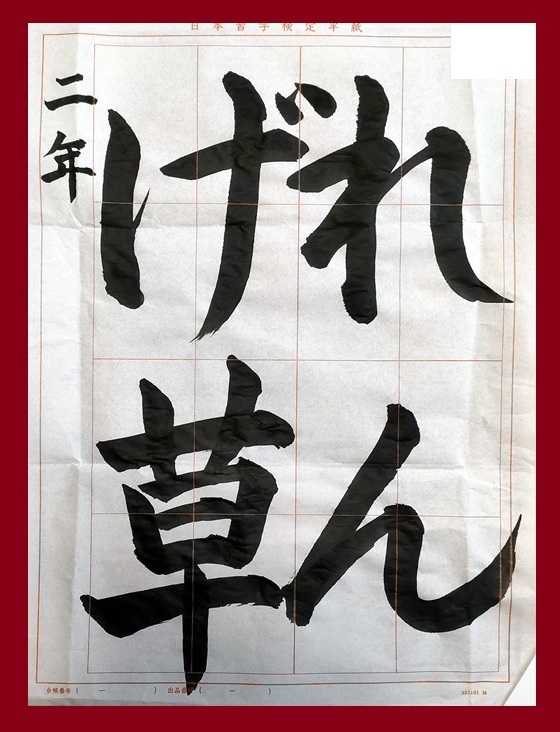 日本習字検定半紙
れん
げ草
二年
台帳番号( ー ) 出品番号( ー )
221101 M